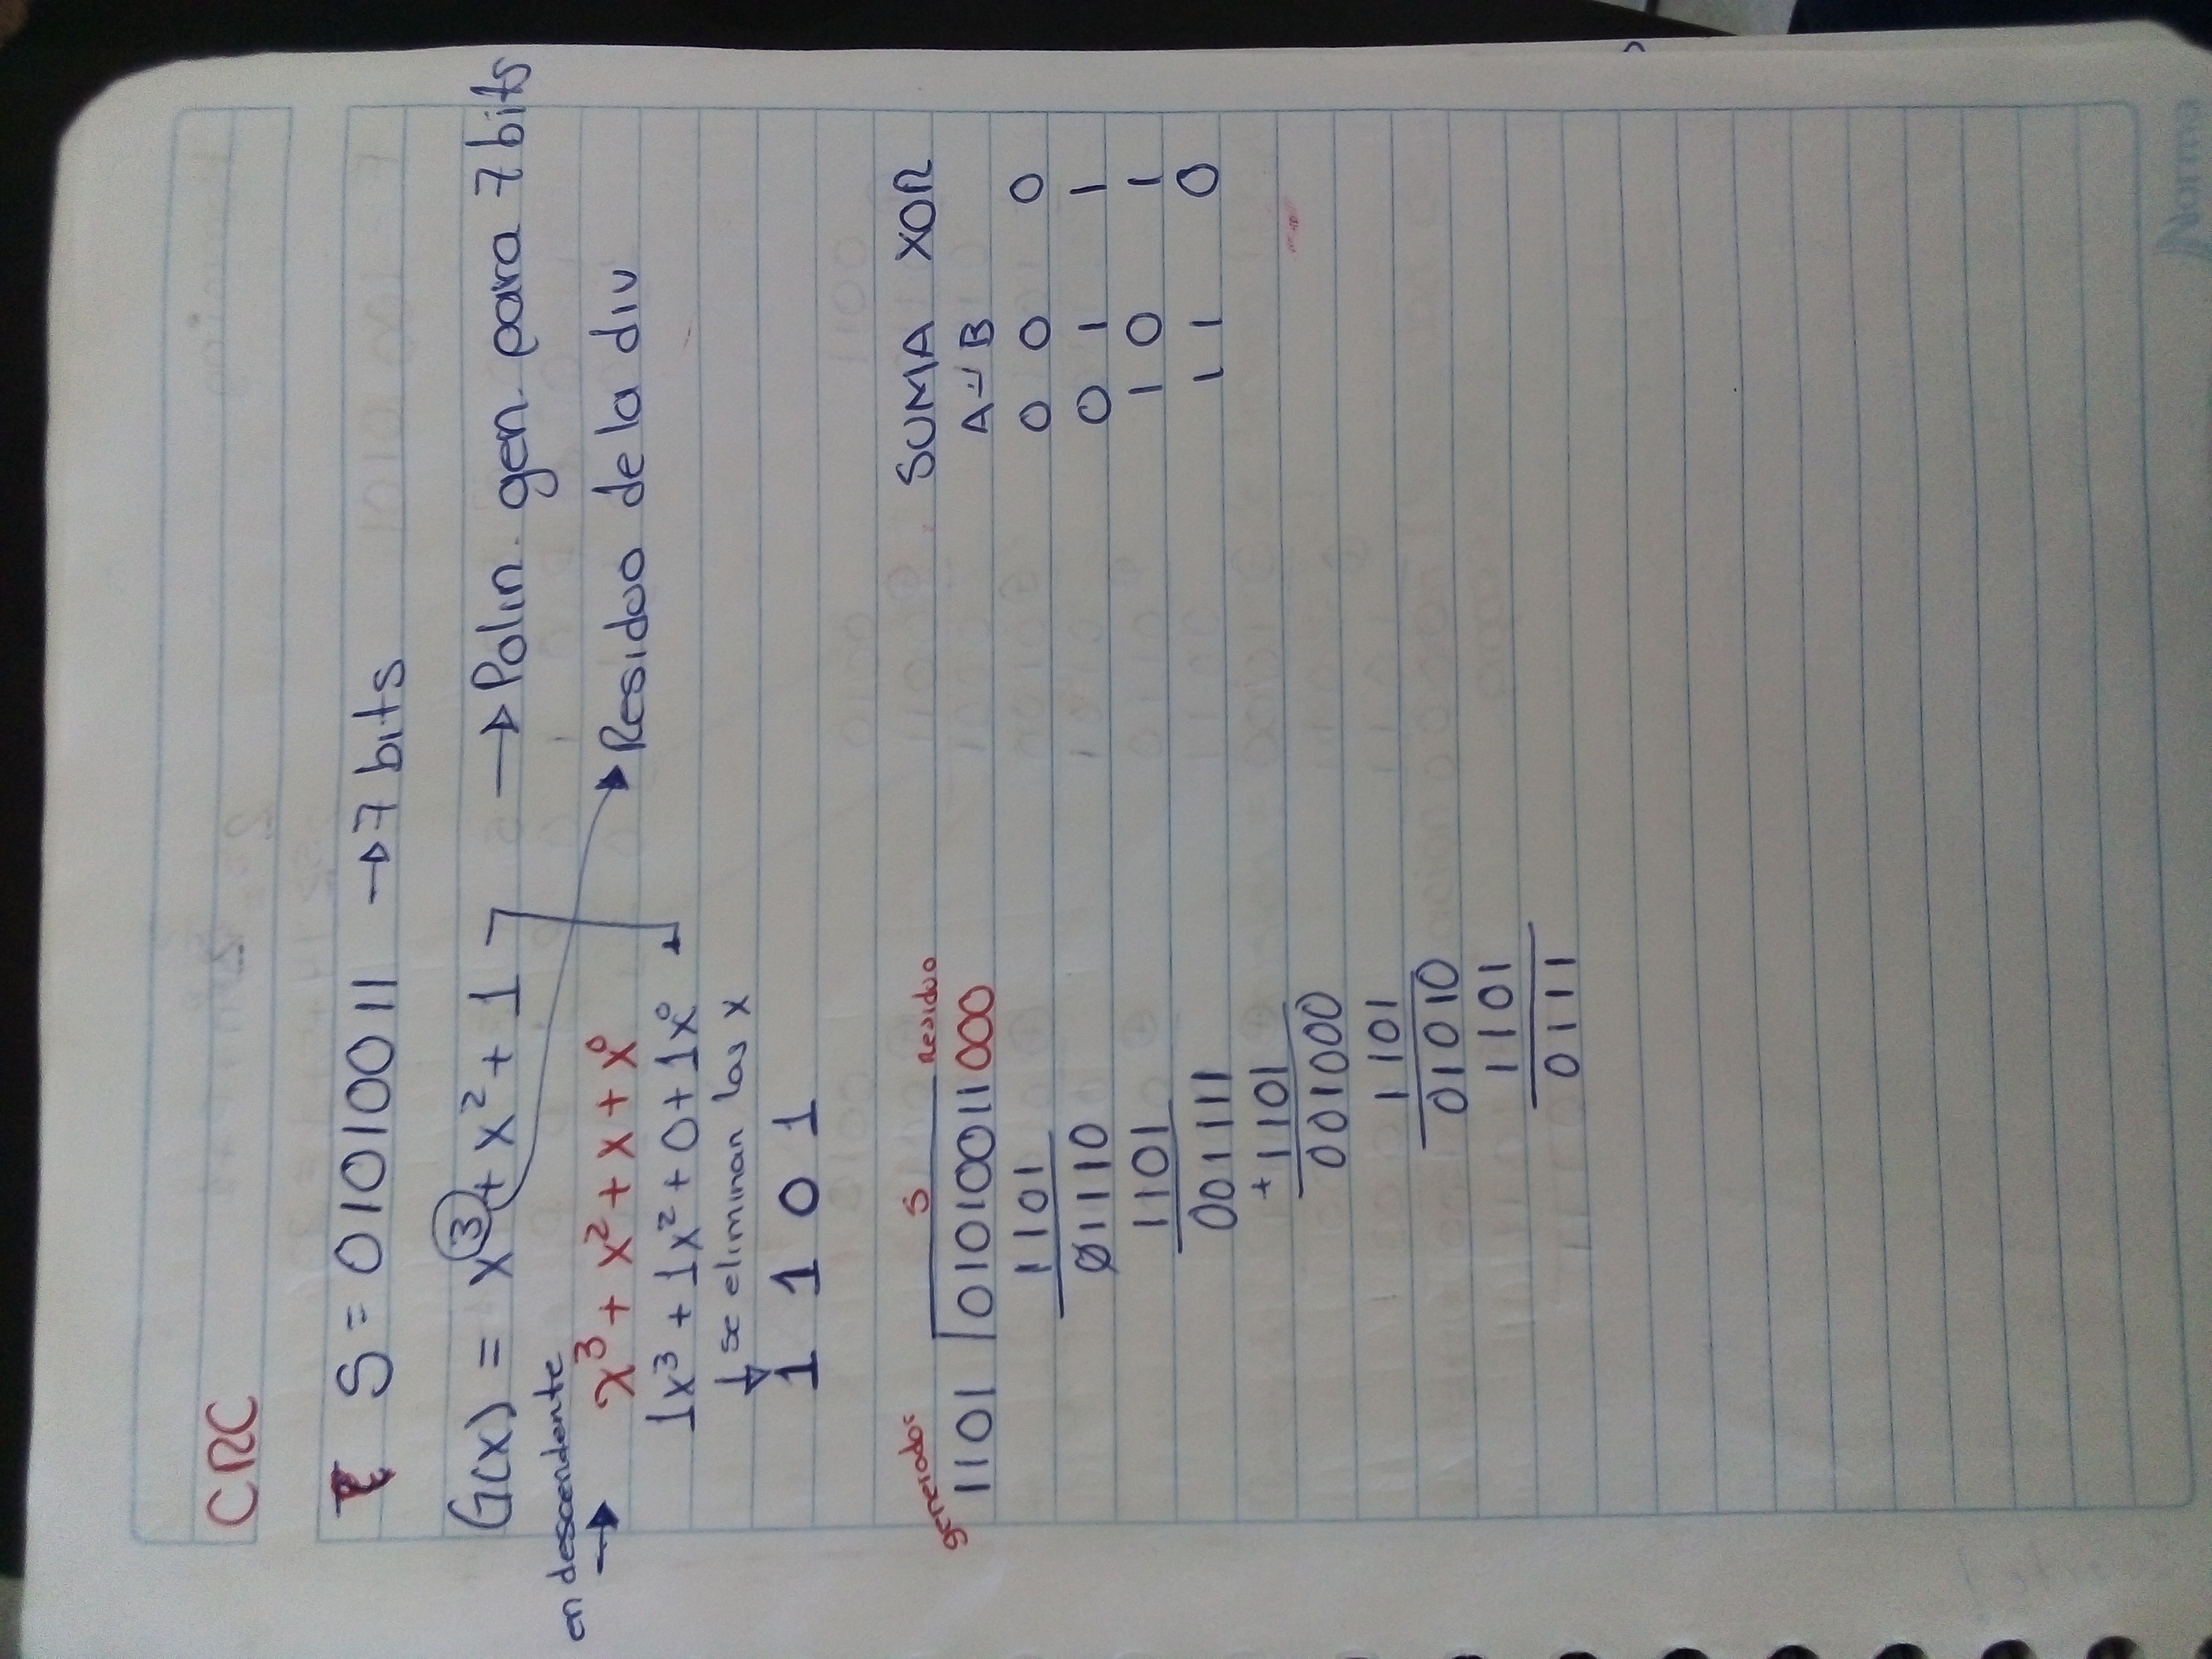 CRC
S = 01010011 → 7 bits
G(x) = x³ + x² + 1 → Polin. gen. para 7 bits
en descendente
→ x³ + x² + x + x⁰
Residuo de la div
1x³ + 1x² + 0 + 1x⁰
↓ se eliminan las x
1 1 0 1
generador S Residuo
1101 01010011000
1101
01110
1101
001111
+1101
001000
1101
01010
1101
0111
SUMA XOR
A B
0 0 0
0 1 1
1 0 1
1 1 0
Norma